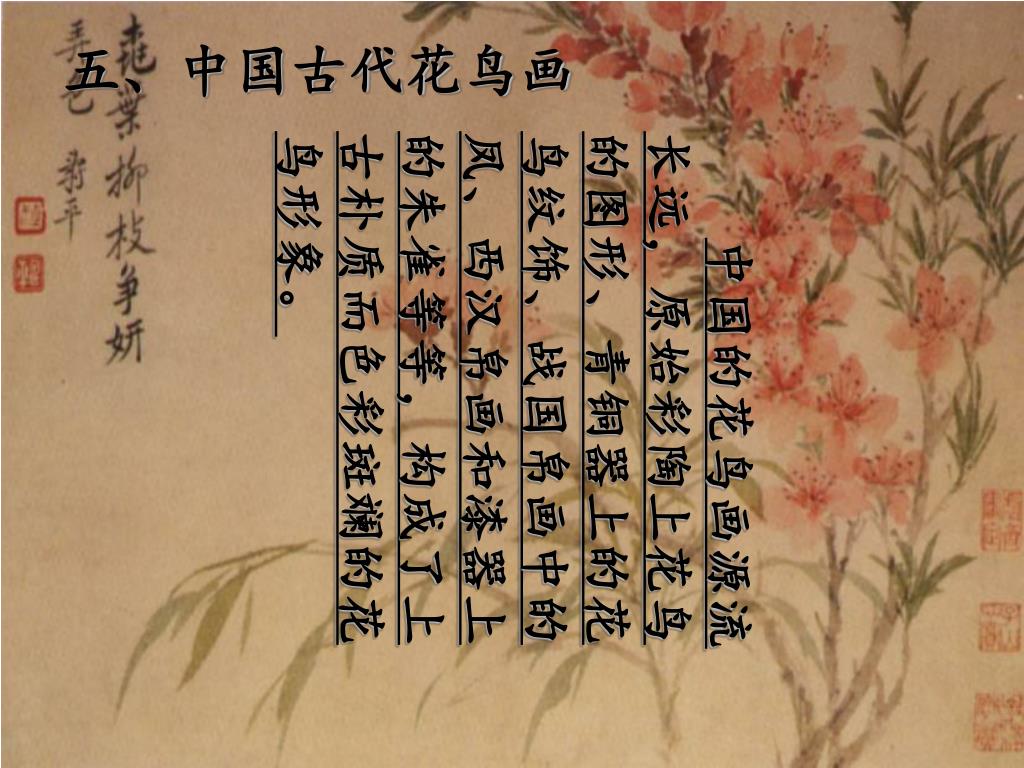 五、中国古代花鸟画
中国的花鸟画源流
长远，原始彩陶上花鸟
的图形、青铜器上的花
鸟纹饰、战国帛画中的
凤、西汉帛画和漆器上
的朱雀等等，构成了上
古朴质而色彩斑斓的花
鸟形象。
葉柳枝争妍
寿平